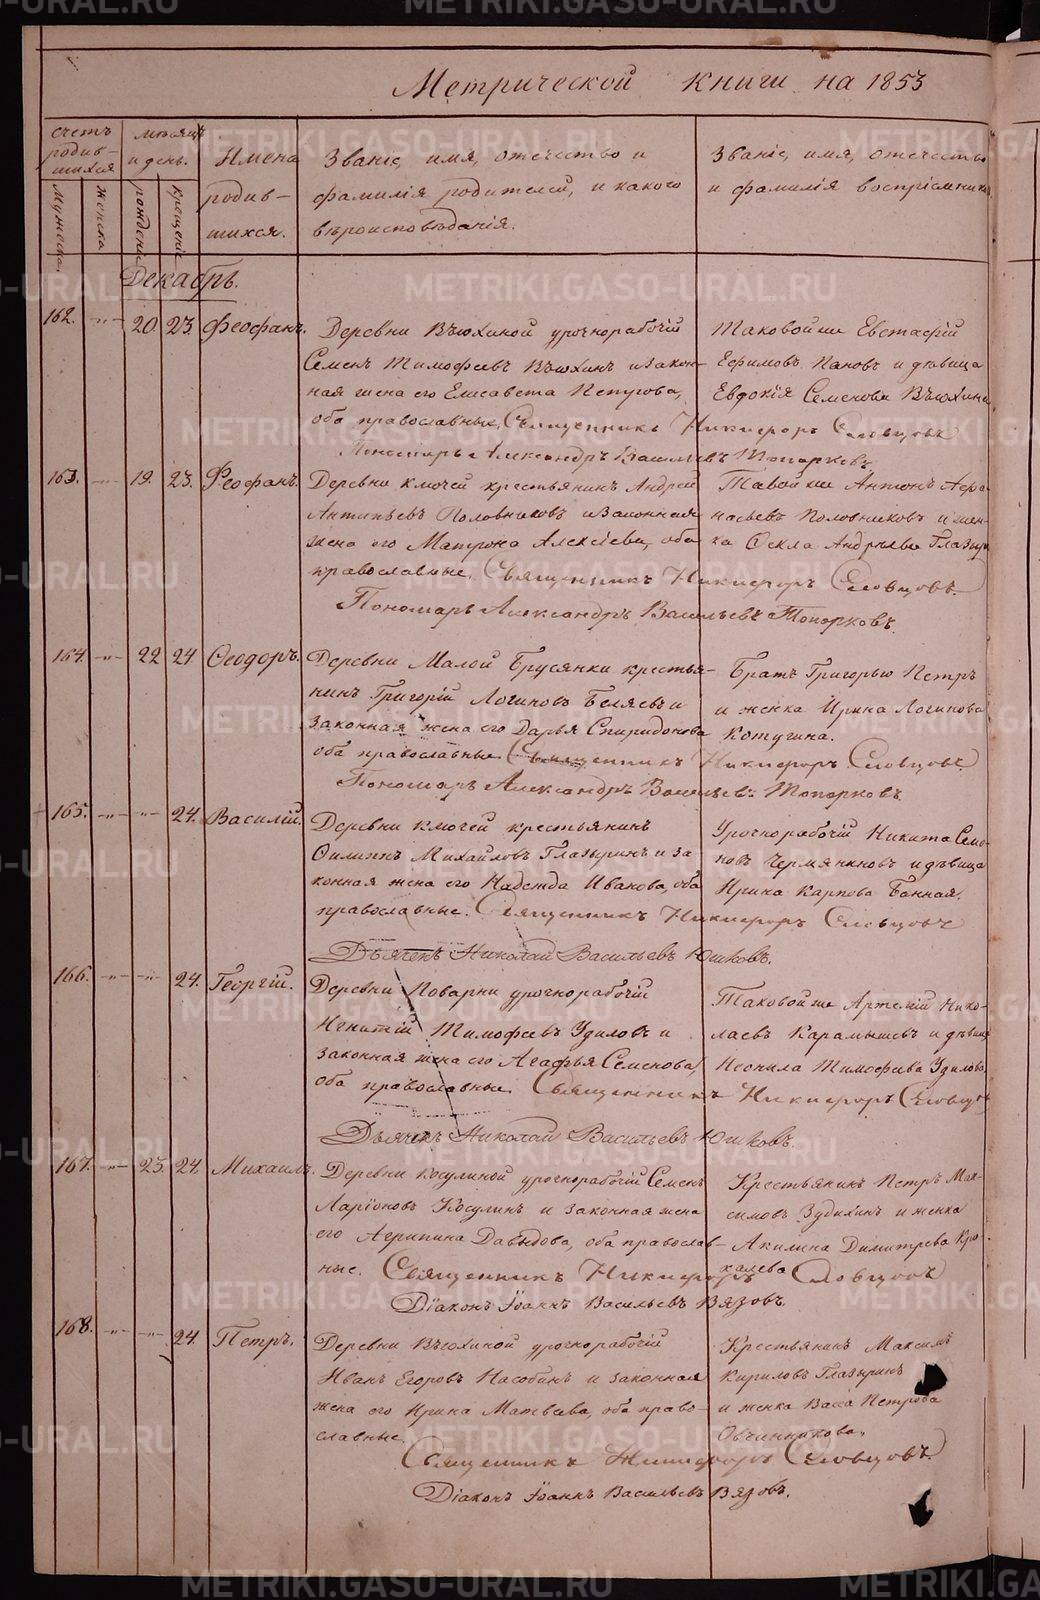 Метрической книги на 1853
счетъ родив-шихся
мѣсяцъ и день.
Имена родив-шихся.
Званіе, имя, отечество и фамилія родителей, и какого вѣроисповѣданія.
Званіе, имя, отечество и фамилія воспріемников
Мужеска.
Женска
рожденія
крещенія
Декабрь.
162. -"- 20. 23. Феофанъ.
Деревни Вьюхиной урочнорабочій
Семенъ Тимофеевъ Вьюхинъ и закон-
ная жена его Елисавета Петрова,
оба православные, Священникъ Никифоръ Словцовъ
Пономарь Александръ Васильевъ Топорковъ
Таковой же Евстафій
Ефимовъ Пановъ и дѣвица
Евдокія Семенова Вьюхина
163. -"- 19. 23. Феофанъ.
Деревни Ключей крестьянинъ Андрей
Антипьевъ Половниковъ и законная
жена его Матрона Алексіева, оба
православные, Священникъ Никифоръ Словцовъ.
Пономарь Александръ Васильевъ Топорковъ.
Тавой же Антонъ Афа-
насьевъ Половниковъ и жен-
ка Ѳекла Андрѣева Глазыр
164. -"- 22 24 Ѳеодоръ.
Деревни Малой Брусянки крестья-
нинъ Григорій Логиновъ Беляевъ и
законная жена его Дарья Спиридонова
оба православные Священникъ Никифоръ Словцовъ.
Пономарь Александръ Васильевъ Топорковъ.
Братъ Григорью Петръ
и женка Ирина Логинова
Котугина.
165. -"- -"- 24. Василій.
Деревни Ключей крестьянинъ
Филиппъ Михайловъ Глазыринъ и за
конная жена его Надежда Иванова, оба
православные. Священникъ Никифоръ Словцовъ
Дьячекъ Николай Васильевъ Юшковъ.
Урочнорабочій Никита Семе
новъ Чермяниновъ и дѣвица
Ирина Карпова Банная.
166. -"- -"- 24. Георгій.
Деревни Поварни урочнорабочій
Игнатій Тимофеевъ Удиловъ и
законная жена его Агафья Семенова,
оба православные. Священникъ Никифоръ Словцов
Дьячекъ Николай Васильевъ Юшковъ.
Таковой же Артемій Нико-
лаевъ Карамышевъ и дѣвица
Неонила Тимофеева Удилова
167. -"- 23. 24. Михаилъ.
Деревни Косулиной урочнорабочій Семенъ
Ларіоновъ Косулинъ и законная жена
его Агрипина Давыдова, оба православ-
ные. Священникъ Никифоръ Словцовъ
Діаконъ Іоаннъ Васильевъ Вязовъ.
Крестьянинъ Петръ Мак-
симовъ Зудихинъ и женка
Акилина Димитрева Кро-
халева
168. -"- -"- 24 Петръ.
Деревни Вьюхиной урочнорабочій
Иванъ Егоровъ Насобинъ и законная
жена его Ирина Матвеева, оба право-
славные.
Священникъ Никифоръ Словцовъ.
Діаконъ Іоаннъ Васильевъ Вязовъ.
Крестьянинъ Максимъ
Кириловъ Глазыринъ
и женка Васса Петрова
Овчинникова.
METRIKI.GASO-URAL.RU